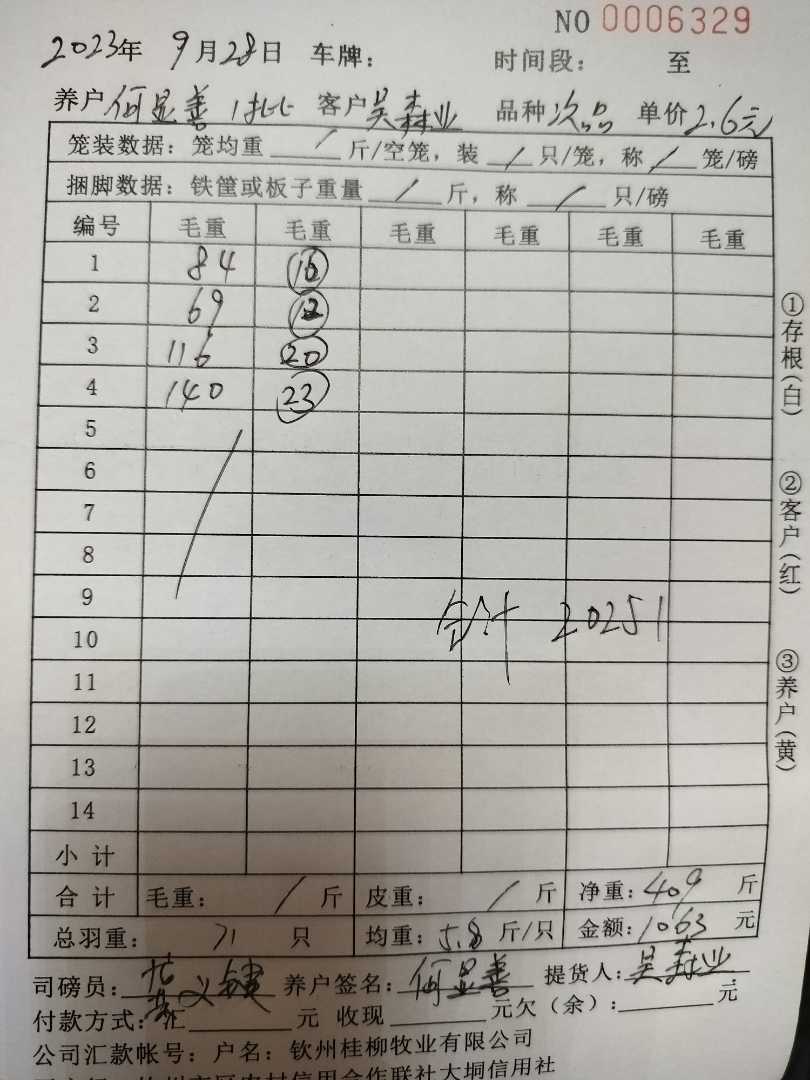 NO 0006329
2023年 9月28日 车牌： 时间段： 至
养户 何显善 1批 客户 吴森业 品种 次品 单价 2.6元
笼装数据：笼均重 / 斤/空笼，装 / 只/笼，称 / 笼/磅
捆脚数据：铁筐或板子重量 / 斤，称 / 只/磅
编号 毛重 毛重 毛重 毛重 毛重 毛重
1 84 16
2 69 12
3 116 20
4 140 23
5
6
7
8
9
合计 20251
10
11
12
13
14
小计
合计 毛重： / 斤 皮重： / 斤 净重：409 斤
总羽重： 71 只 均重：5.8 斤/只 金额：1063 元
司磅员： 养户签名：何显善 提货人：吴森业
付款方式：汇 元 收现 元欠（余）： 元
公司汇款帐号：户名：钦州桂柳牧业有限公司
①存根（白）
②客户（红）
③养户（黄）